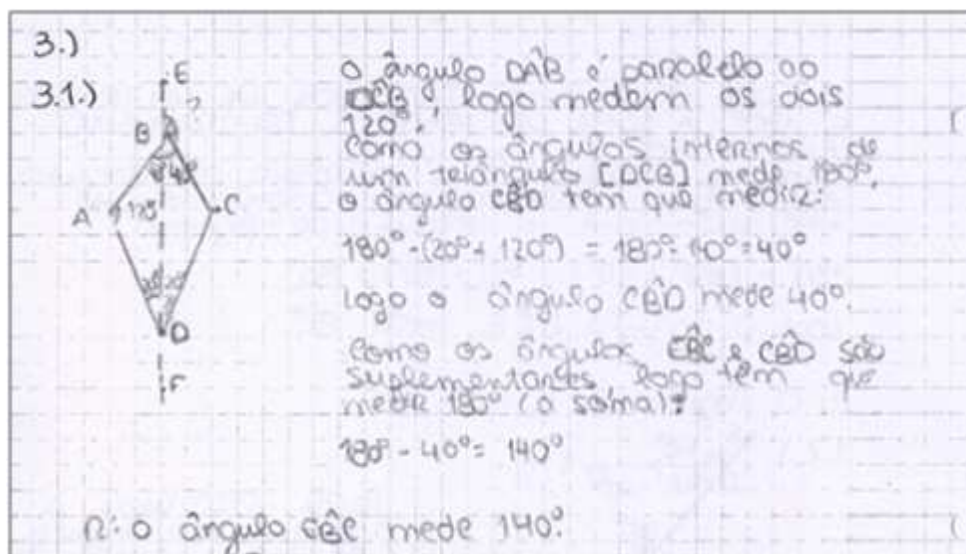 3.)
3.1.)
E
?
B
40°
A
120°
C
20°
D
F
O ângulo DÂB é paralelo ao
DĈB, logo medem os dois
120°.
Como os ângulos internos de
um triângulo [DCB] mede 180°,
o ângulo CB̂D tem que medir:
180° - (20° + 120°) = 180° - 140° = 40°
Logo o ângulo CB̂D mede 40°.
Como os ângulos EB̂C e CB̂D são
suplementares, logo têm que
medir 180° (a soma):
180° - 40° = 140°
R: O ângulo EB̂C mede 140°.